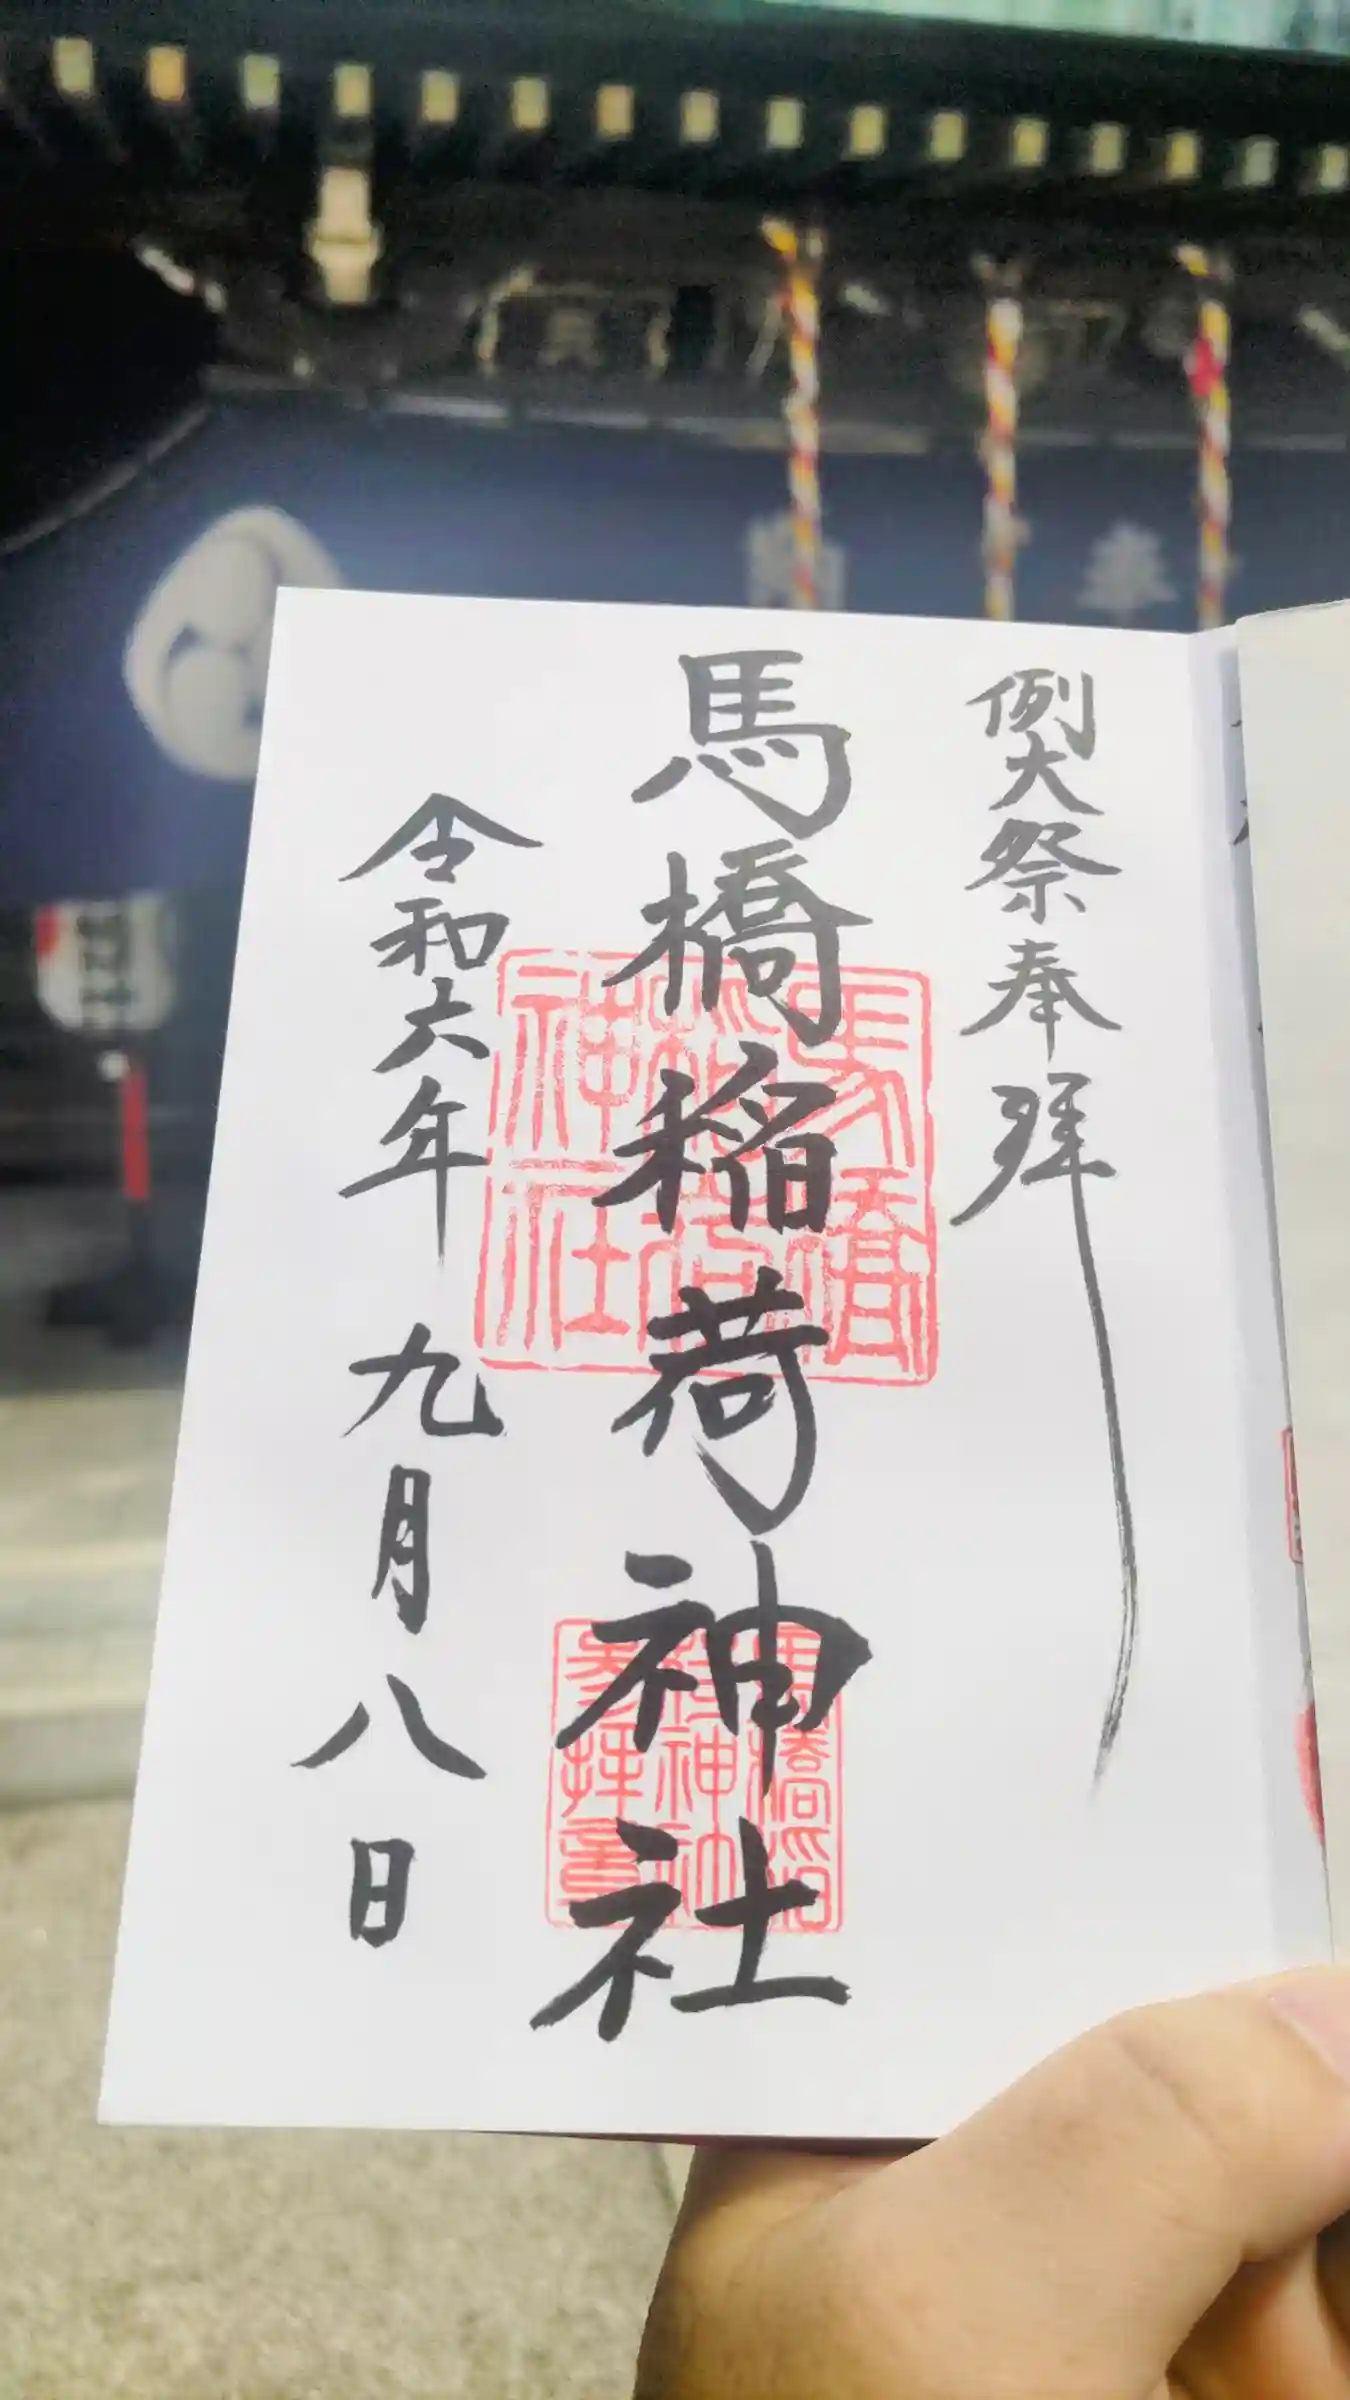 例大祭奉拝
馬橋稲荷神社
令和六年
九月八日
馬橋
稲荷
神社
馬橋稲
荷神社
参拝章
奉